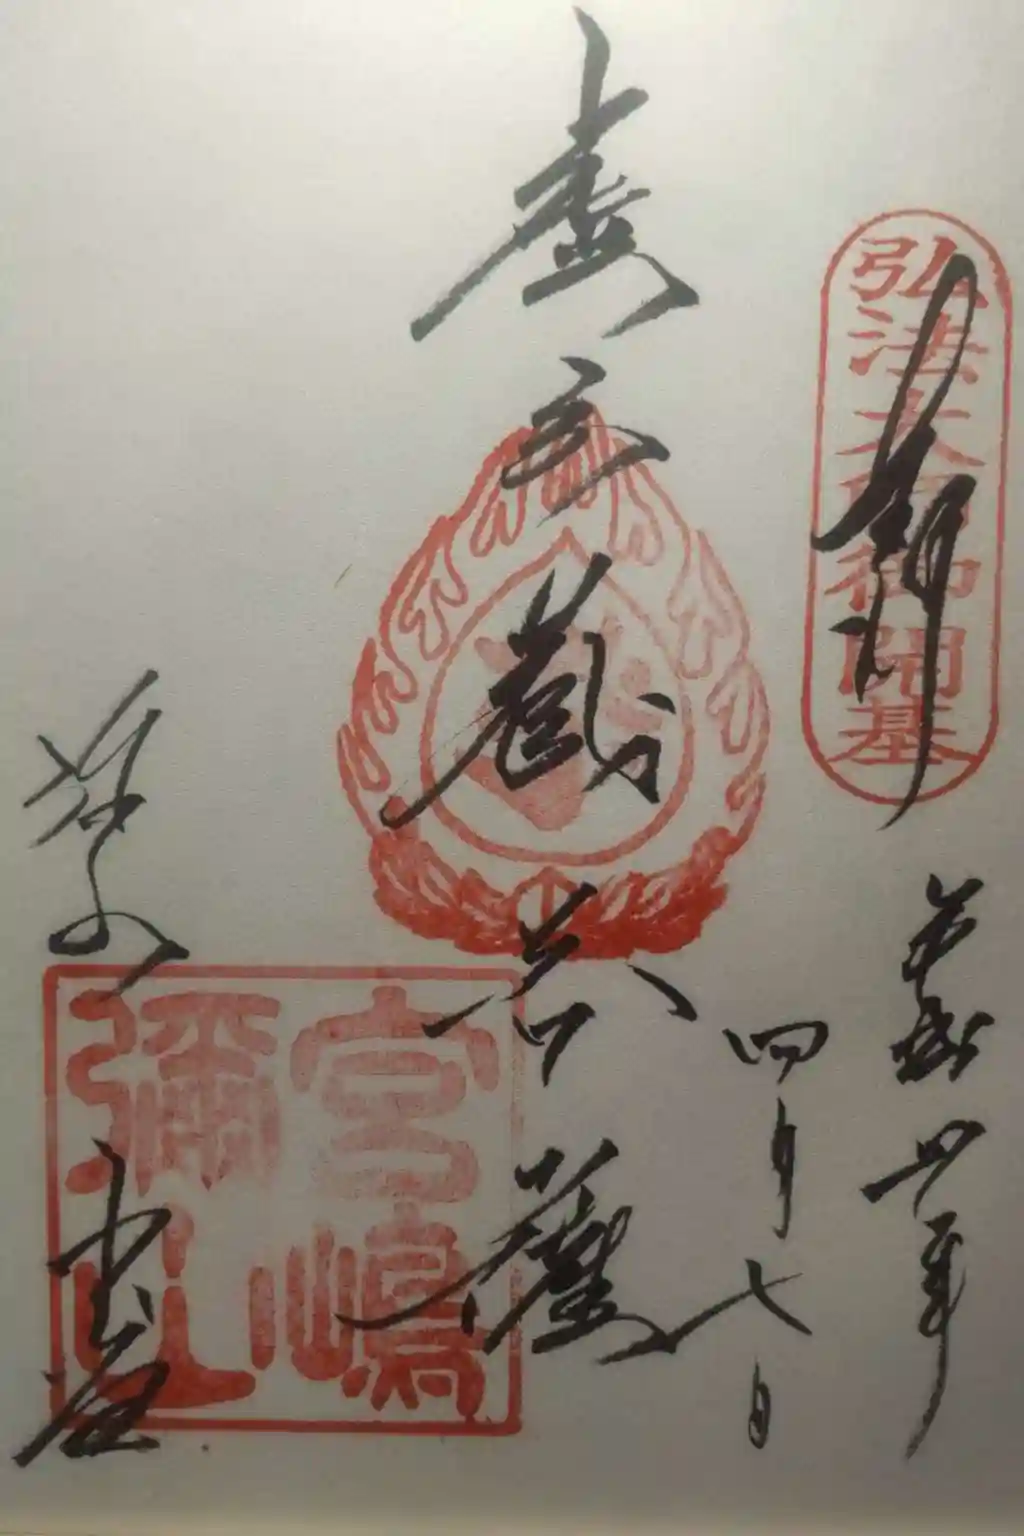 弘法大師御開基
奉拝
令和四年
四月七日
虚空蔵菩薩
宮嶋
彌山
弥山本堂